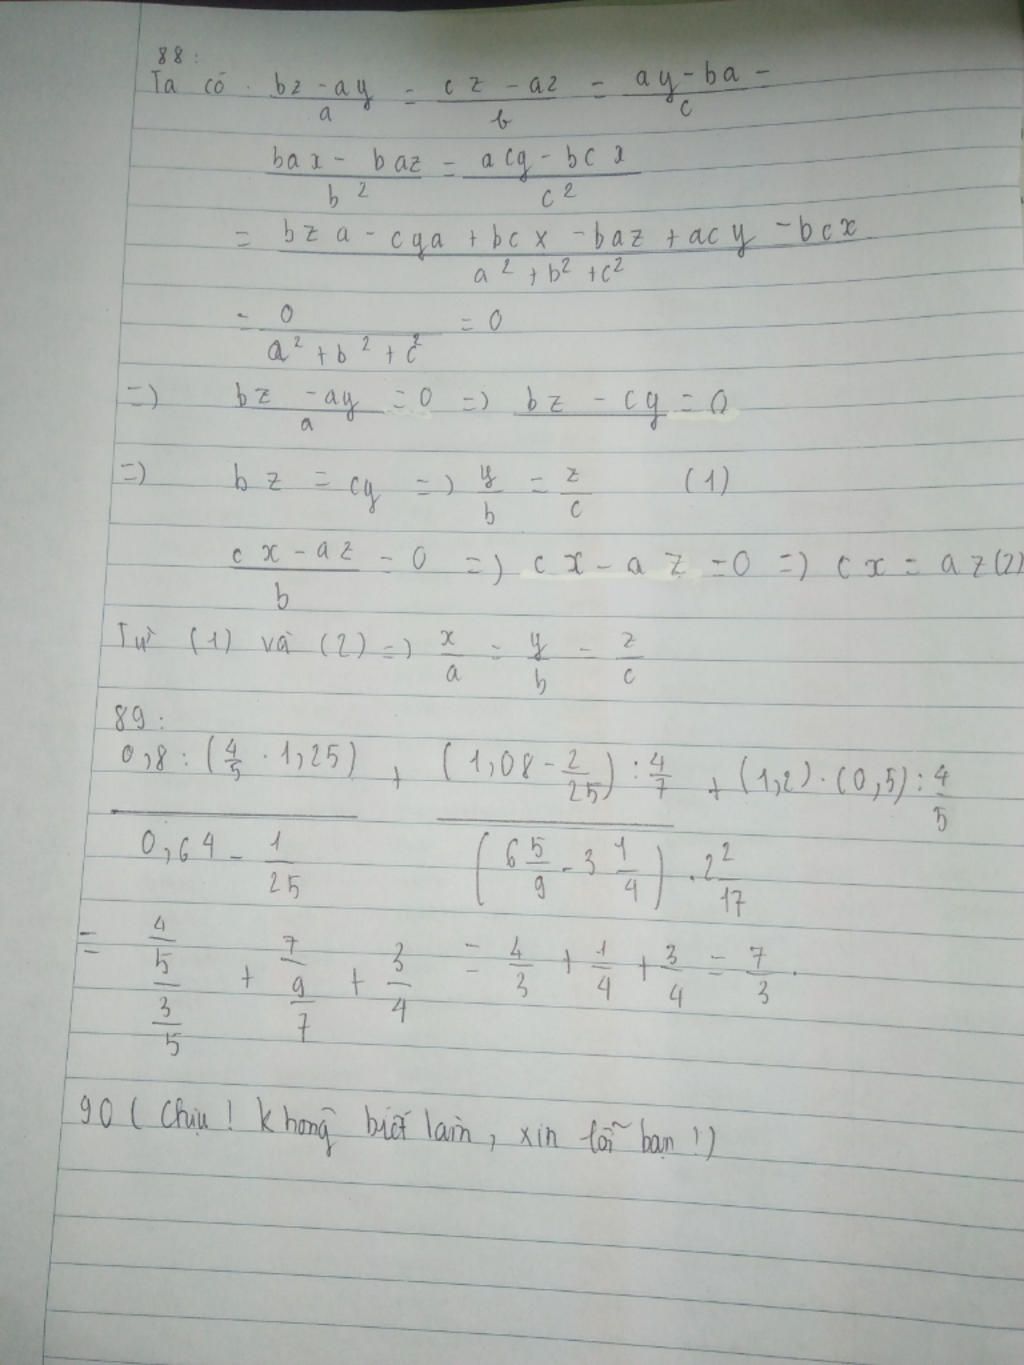 88:
Ta có . bz - ay / a = cz - az / b = ay - ba / c =
bax - baz / b² = acy - bcx / c²
= bza - cya + bcx - baz + acy - bcx / a² + b² + c²
= 0 / a² + b² + c² = 0
=) bz - ay / a = 0 =) bz - cy = 0
=) bz = cy =) y/b = z/c (1)
cx - az / b = 0 =) cx - az = 0 =) cx = az (2)
Từ (1) và (2) =) x/a = y/b = z/c
89:
0,8 : (4/5 . 1,25) / 0,64 - 1/25 + (1,08 - 2/25) : 4/7 / (6 5/9 - 3 1/4) . 2 2/17 + (1,2) . (0,5) : 4/5
= 4/5 / 3/5 + 7 / 9/7 + 3/4 = 4/3 + 1/4 + 3/4 = 7/3 .
90 ( Chịu ! Không biết làm, xin lỗi bạn !)